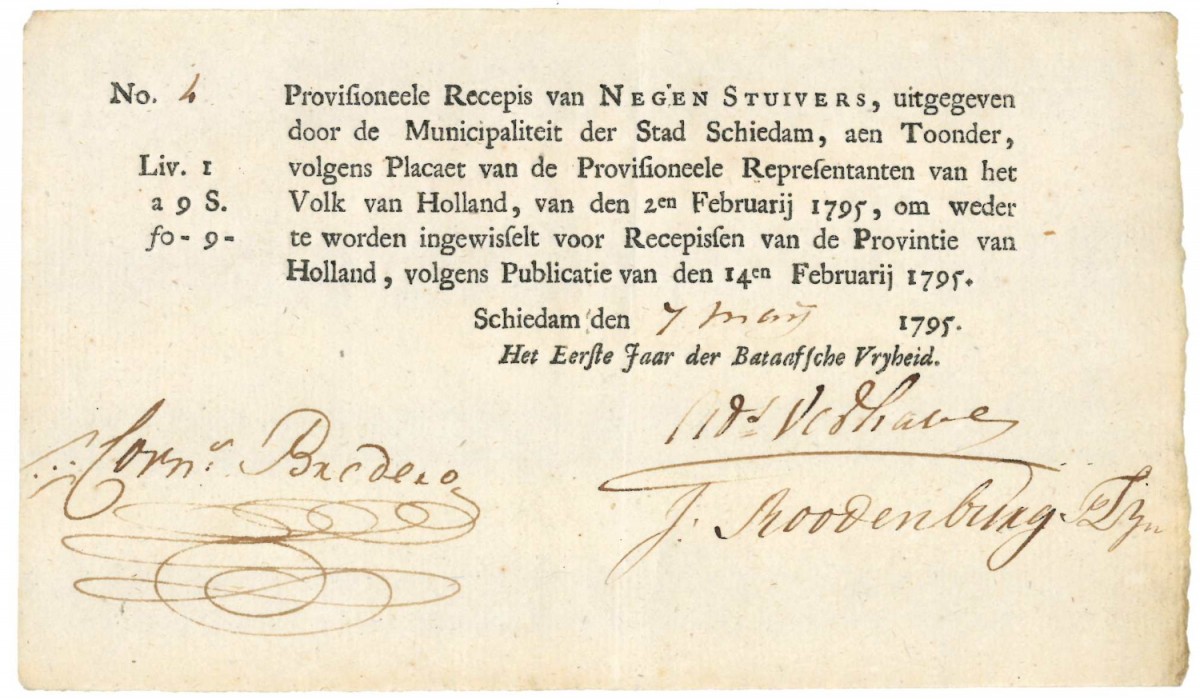 No. 4
Proviſioneele Recepis van NEGEN STUIVERS, uitgegeven
door de Municipaliteit der Stad Schiedam, aen Toonder,
Liv. 1
volgens Placaet van de Proviſioneele Repreſentanten van het
a 9 S.
Volk van Holland, van den 2en Februarij 1795, om weder
fo- 9-
te worden ingewiſſelt voor Recepiſſen van de Provintie van
Holland, volgens Publicatie van den 14en Februarij 1795.
Schiedam den 7 maij 1795.
Het Eerſte Jaar der Bataafſche Vryheid.
Adr Verhave
Corns Bredero
J: Roodenburg PZn